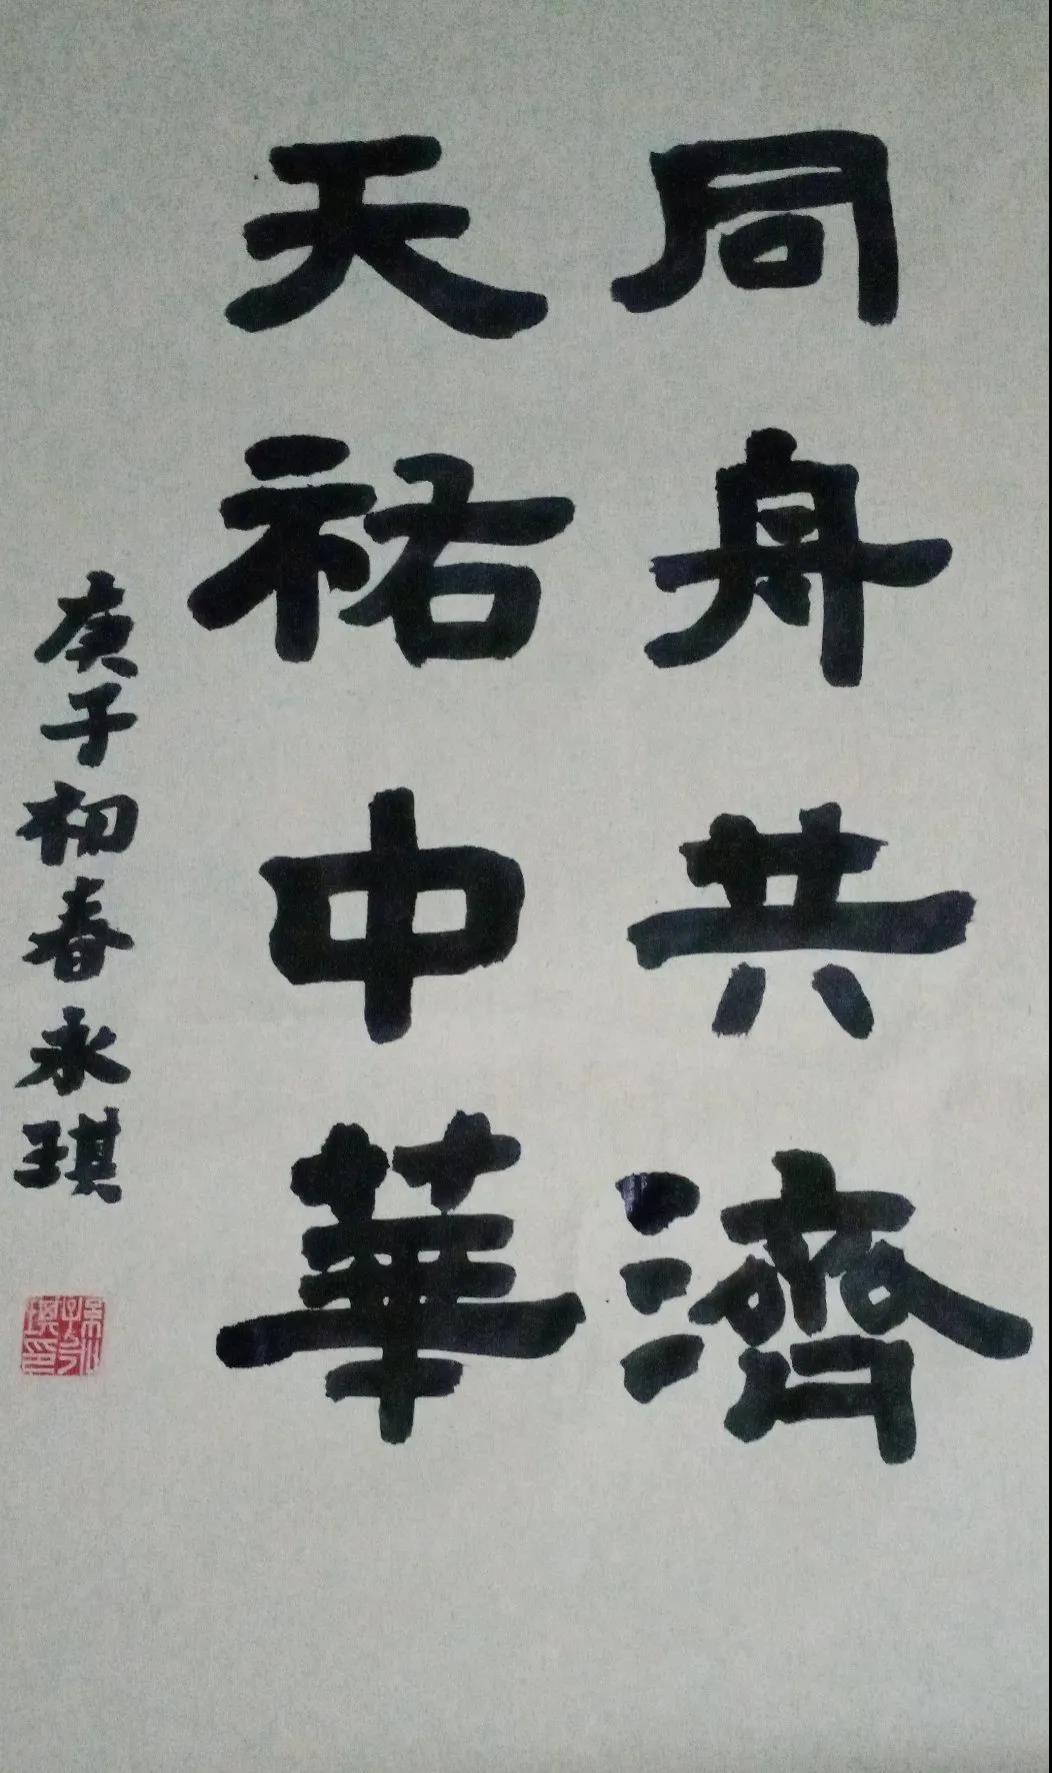 同舟共濟
天祐中華
庚子初春永琪